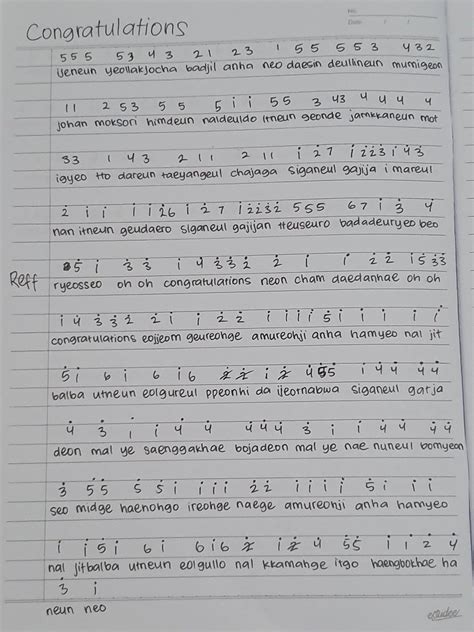 No.
Date / /
Congratulations
5 5 5 5 3 4 3 2 1 2 3 1 5 5 5 5 3 4 3 2
ijeneun yeollakjocha badjil anha neo daesin deullineun mumigeon
1 1 2 5 3 5 5 5 i i 5 5 3 4 3 4 4 4 4
johan moksori himdeun naldeuldo itneun geonde jamkkaneun mot
3 3 1 4 3 2 1 1 2 1 1 i 2̇ 7 i 2̇ 2̇ 3̇ i 4̇ 3̇
igyeo tto dareun taeyangeul chajaga siganeul gajija i mareul
2̇ i i i i 2̇ 6 i 2̇ 7 i 2̇ 2̇ 3̇ 2̇ 5 5 5 6 7 i 3̇ 4̇
nan itneun geudaero siganeul gajijan tteuseuro badadeuryeo beo
Reff
5̇ i 3̇ 3̇ i 4̇ 3̇ 3̇ 2̇ 2̇ i i 2̇ 2̇ i 5̇ 3̇ 3̇
ryeosseo oh oh congratulations neon cham daedanhae oh oh
i 4̇ 3̇ 3̇ 2̇ 2̇ i i i 2̇ 2̇ i i i i 5̇ i i i i
congratulations eojjeom geureohge amureohji anha hamyeo nal jit
5̇ i 6 i 6 i 6 i 2̇ 4̇ 5̇ 5̇ i 4̇ 4̇ 4̇ 4̇
balba utneun eolgureul ppeonhi da ijeornabwa siganeul gatja
4̇ 3̇ i i 4̇ 4̇ 4̇ 4̇ 4̇ 3̇ i i 4̇ 4̇ 4̇ 4̇
deon mal ye saenggakhae bojadeon mal ye nae nuneul bomyeon
3̇ 5̇ 5̇ 5̇ 5̇ i i i i 2̇ 2̇ i i i i 5̇ i i i
seo midge haenohgo ireohge naege amureonji anha hamyeo
i i 5̇ i 6 i 6 i 6 2̇ i 2̇ 4̇ 5̇ 5̇ i i 2̇ 4̇
nal jitbalba utneun eolgullo nal kkamahge itgo haengbokhae ha
3̇ i
neun neo